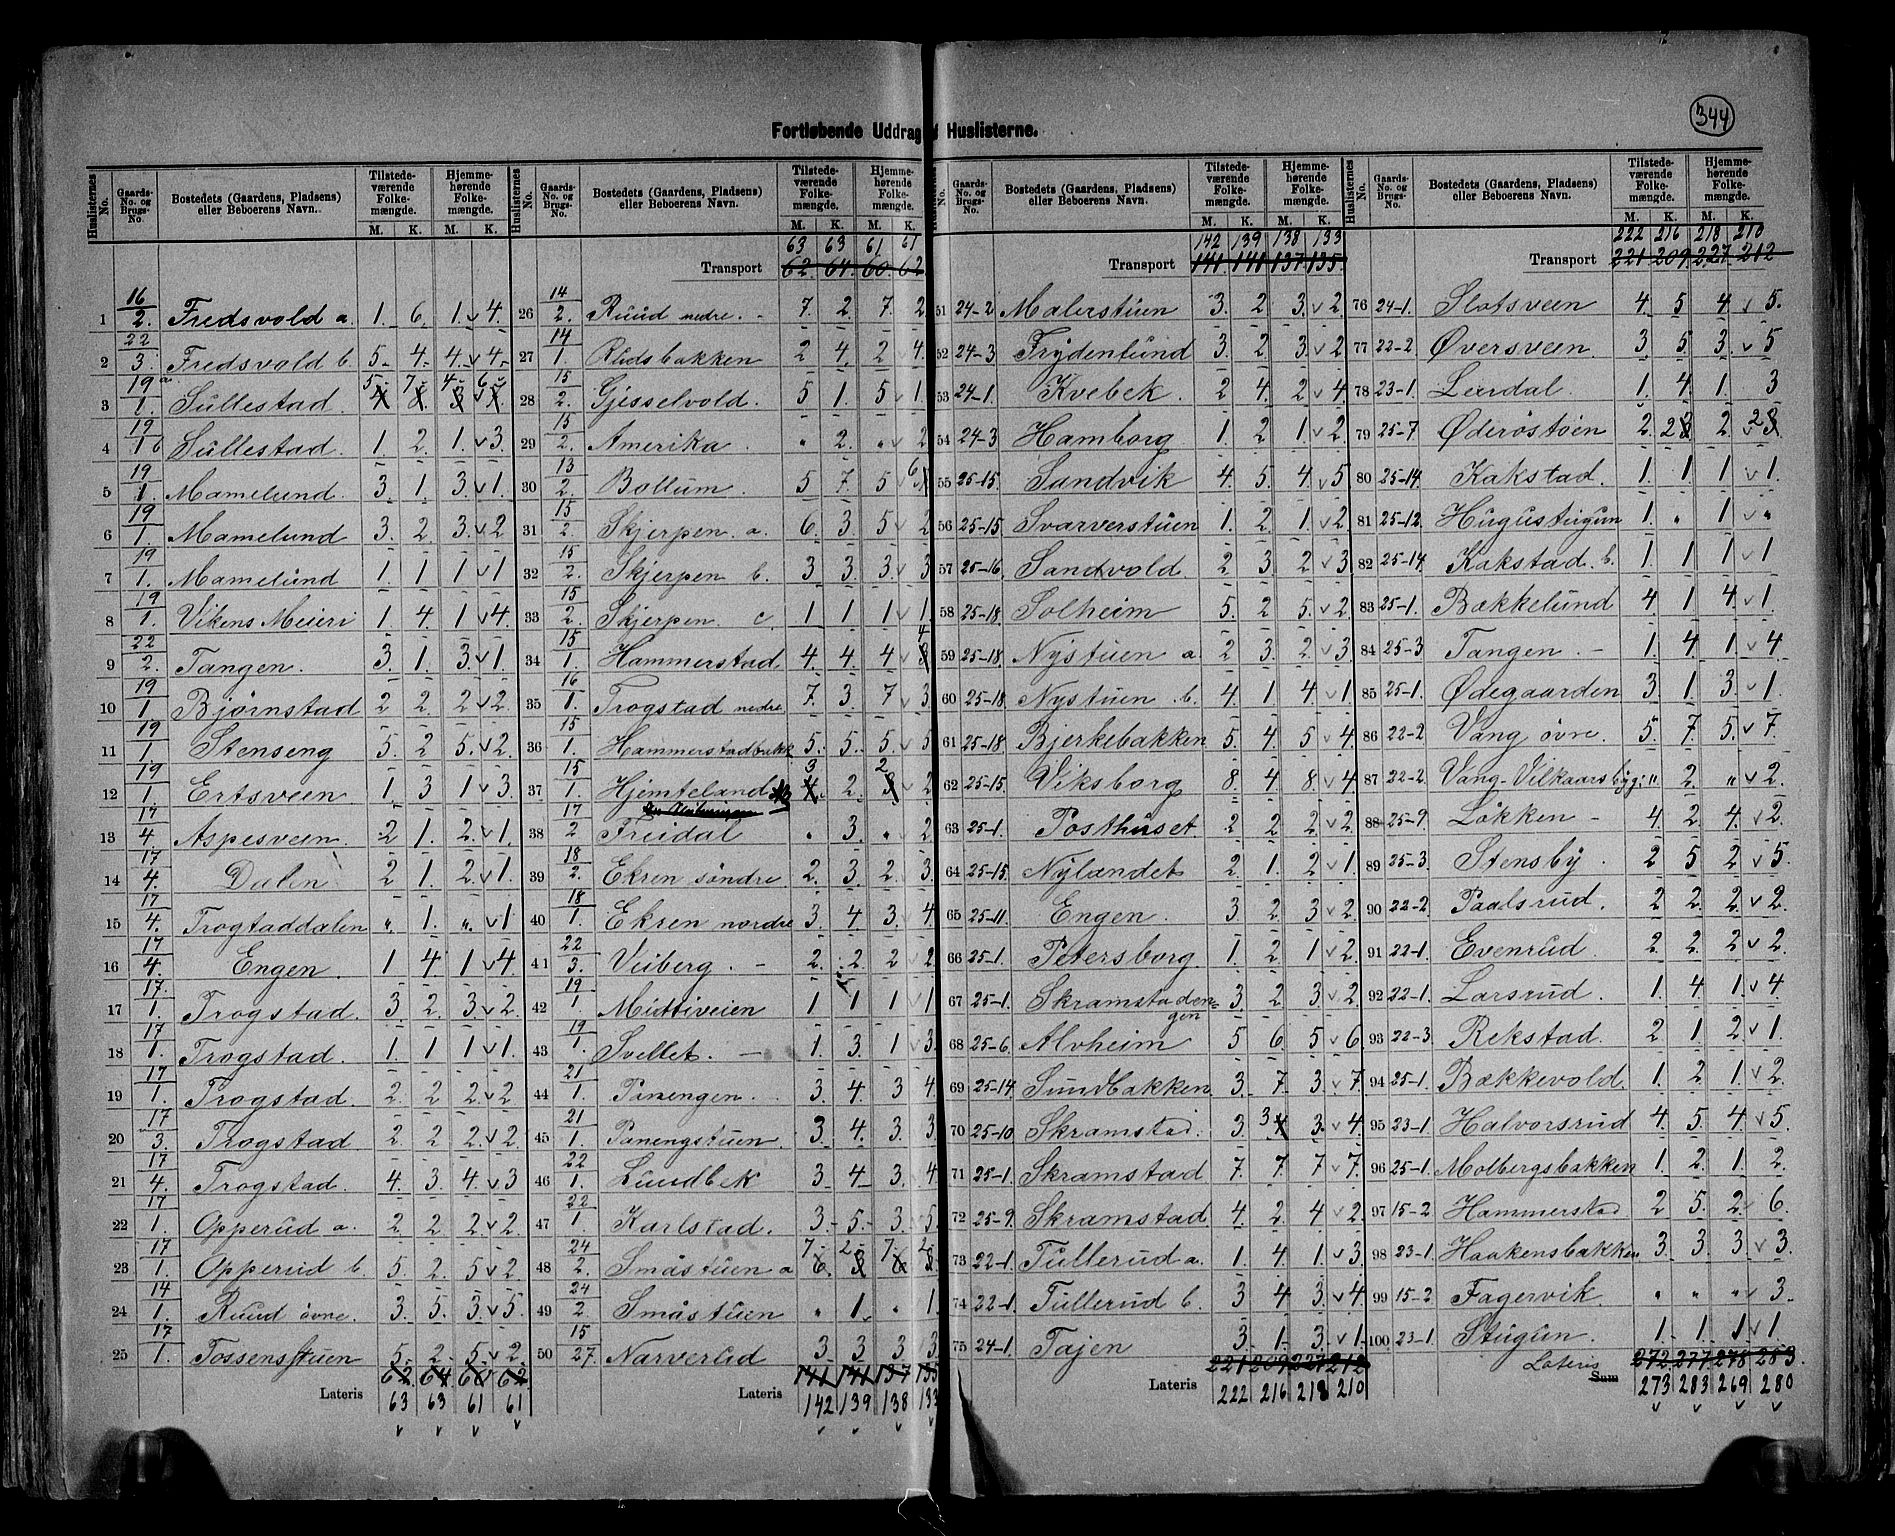 344
Fortløbende Uddrag f Huslisterne.
Huslisternes No. | Gaards-No. og Brugs-No. | Bostedets (Gaardens, Pladsens) eller Beboerens Navn. | Tilstedeværende Folkemængde. M. K. | Hjemmehørende Folkemængde. M. K.
1 16/2. Fredsvold a. 1. 6. 1. 4.
2 22/3. Fredsvold b. 5 4. 4. 4.
3 19a/1. Sullestad. 5 7 4 6
4 19/1 b Sullestad. 1. 2. 1. 3.
5 19/1. Mamelund. 3. 1. 3. 1.
6 19/1. Mamelund 3. 2. 3. 2
7 19/1. Mamelund 1. 1 1 1
8 19/1. Vikens Meieri 1 4. 1 4.
9 22/2. Tangen. 3. 1. 3. 1.
10 19/1 Bjørnstad 2 2. 2 2.
11 19/1 Stenseng 5. 2 5. 2.
12 19/1. Ertsveen 1. 3 1 3.
13 17/4 Aspesveen. 2 1. 2. 1.
14 17/4. Dalen 2 1. 2. 1.
15 17/4. Trogstaddalen " 1. " 1
16 17/4. Engen. 1 4. 1 4.
17 17/1. Trogstad. 3 2. 3. 2.
18 17/1. Trogstad. 1. 1 1 1.
19 17/1. Trogstad. 2. 2 2. 2
20 17/3. Trogstad 2. 2 2. 2.
21 17/4. Trogstad. 4. 3. 4. 3
22 17/1. Opperud a. 2 2. 2. 2.
23 17/1. Opperud b. 5. 2. 5 2.
24 14/1. Ruud øvre. 3. 5. 3. 5.
25 17/1. Tossensstuen 5. 2. 5. 2.
62. 64. 60 62
Lateris 63 63 61 61
63 63 61 61
Transport 62 64. 60 62
26 14/2. Ruud nedre. 7. 2. 7. 2
27 14/1. Rudsbakken 2 4. 2 4.
28 15/2. Gjisselvold. 5 1. 5 1.
29 15/2. Amerika " 2. " 2
30 13/2. Bollum 5 7. 5 6
31 15/2. Skjerpen. a. 6. 3 5 2
32 15/2. Skjerpen b. 3 3. 3. 3
33 15/2. Skjerpen. c. 1 1 1 1.
34 15/1. Hammerstad 4. 4. 4 4
35 16/1. Trogstad nedre 7. 3. 7 3
36 15/1. Hammerstadbakk 5. 5. 5. 5
37 15/1. Hjemteland 3 2 2 2
38 17/2 Freidal " 3. " 2
39 18/2. Ekren søndre 2. 3. 2. 3
40 18/1. Ekren nordre 3. 4 3. 4
41 22/3. Veiberg. 2. 2 2 2
42 19/1. Midtiveien 1 1 1 1
43 19/1. Svellet. 1. 3. 1 3
44 21/1. Panengen. 3. 4. 3 4
45 21/1. Panengstuen 3. 4. 3. 3
46 22/1. Lundbek 3 4 3. 4
47 22/1. Karlstad. 3. 5. 3. 5
48 24/2. Småstuen a 7 2 7 2
49 24/2. Småstuen " 1. " 1.
50 15/27. Narverud 3 3 3 3
141 141 137 135
Lateris 142 139 138 133
142 139 138 133
Transport 141 141 137 135.
51 24-2 Malerstuen 3. 2 3. 2
52 24-3 Frydenlund 3. 2 3. 2
53 24-1. Kvebek 2 4. 2 4.
54 24-3 Hamborg 1. 2 1. 2.
55 25-15. Sandvik 4. 5. 4. 5
56 25-15 Svarverstuen 1. 2 1. 2
57 25-16. Sandvold. 2 3 2 3
58 25-18. Solheim 5. 2 5. 2
59 25-18. Nystuen a. 2 3. 2. 3
60 25-18 Nystuen b. 4. 1 4 1
61 25-18 Bjerkebakken 5. 4. 5 4.
62 25-15. Viksborg 8. 4 8. 4
63 25-1. Posthuset 2 2. 2. 2
64 25-15. Nylandet 2 1. 2 1.
65 25-11. Engen. 3. 2. 3 2.
66 25-1. Petersborg. 1 2. 1 2.
67 25-1. Skramstaden-
gen 3 2 3 2.
68 25-6. Alvheim 5 6 5 6.
69 25-14. Sundbakken 3. 7. 3. 7
70 25-10 Skramstad. 3. 3 3. 4.
71 25-1. Skramstad 7. 7 7 7.
72 25-9. Skramstad 4. 2 4 2.
73 22-1 Tullerud a. 1. 4 1. 3
74 22-1. Tullerud b. 3 4 3. 4.
75 24-1 Tajen 3. 1. 3. 1.
221 209 227 212
Lateris 222 216 218 210
222 216 218 210
Transport 221 209. 227 212
76 24-1. Slotsveen 4. 5 4. 5.
77 22-2 Øversveen 3 5 3. 5
78 23-1. Leirdal. 1. 4. 1. 3
79 25-7 Øderøstøen 2. 2 2 2
80 25-14. Kakstad. 1. 1 1 1.
81 25-12. Hugustugun 1. " 1 "
82 25-14 Kakstad. b. 1. 1 1 1
83 25-1. Bækkelund 4 1 4. 1.
84 25-3 Tangen. 1. 4 1. 4
85 25-1. Ødegaarden 3. 1. 3. 1.
86 22-2 Vang øvre. 5. 7 5. 7.
87 22-2. Vang-Vilkaarsbyg: " 2. " 2.
88 25-9. Løkken 4. 2. 4. 2.
89 25-3. Stensby. 2 5 2 5.
90 22-2. Paalsrud. 2. 2. 2. 2.
91 22-1. Evenrud 2 2. 2 2.
92 22-1. Larsrud. 1. 4 1. 4.
93 22-3. Rekstad. 2 1 2 1.
94 25-1. Bækkevold. 1. 2 1. 2.
95 23-1. Halvorsrud 4. 5 4. 5
96 25-1. Molbergsbakken 1. 2. 1. 2.
97 15-2 Hammerstad 2 5. 2 6.
98 23-1. Haakensbakken 3. 3. 3 3.
99 15-2 Fagervik. " " " 3.
100 23-1 Stugun. 1. 1. 1 1.
Lateris Sum 272. 277. 278 283.
273 283 269 280